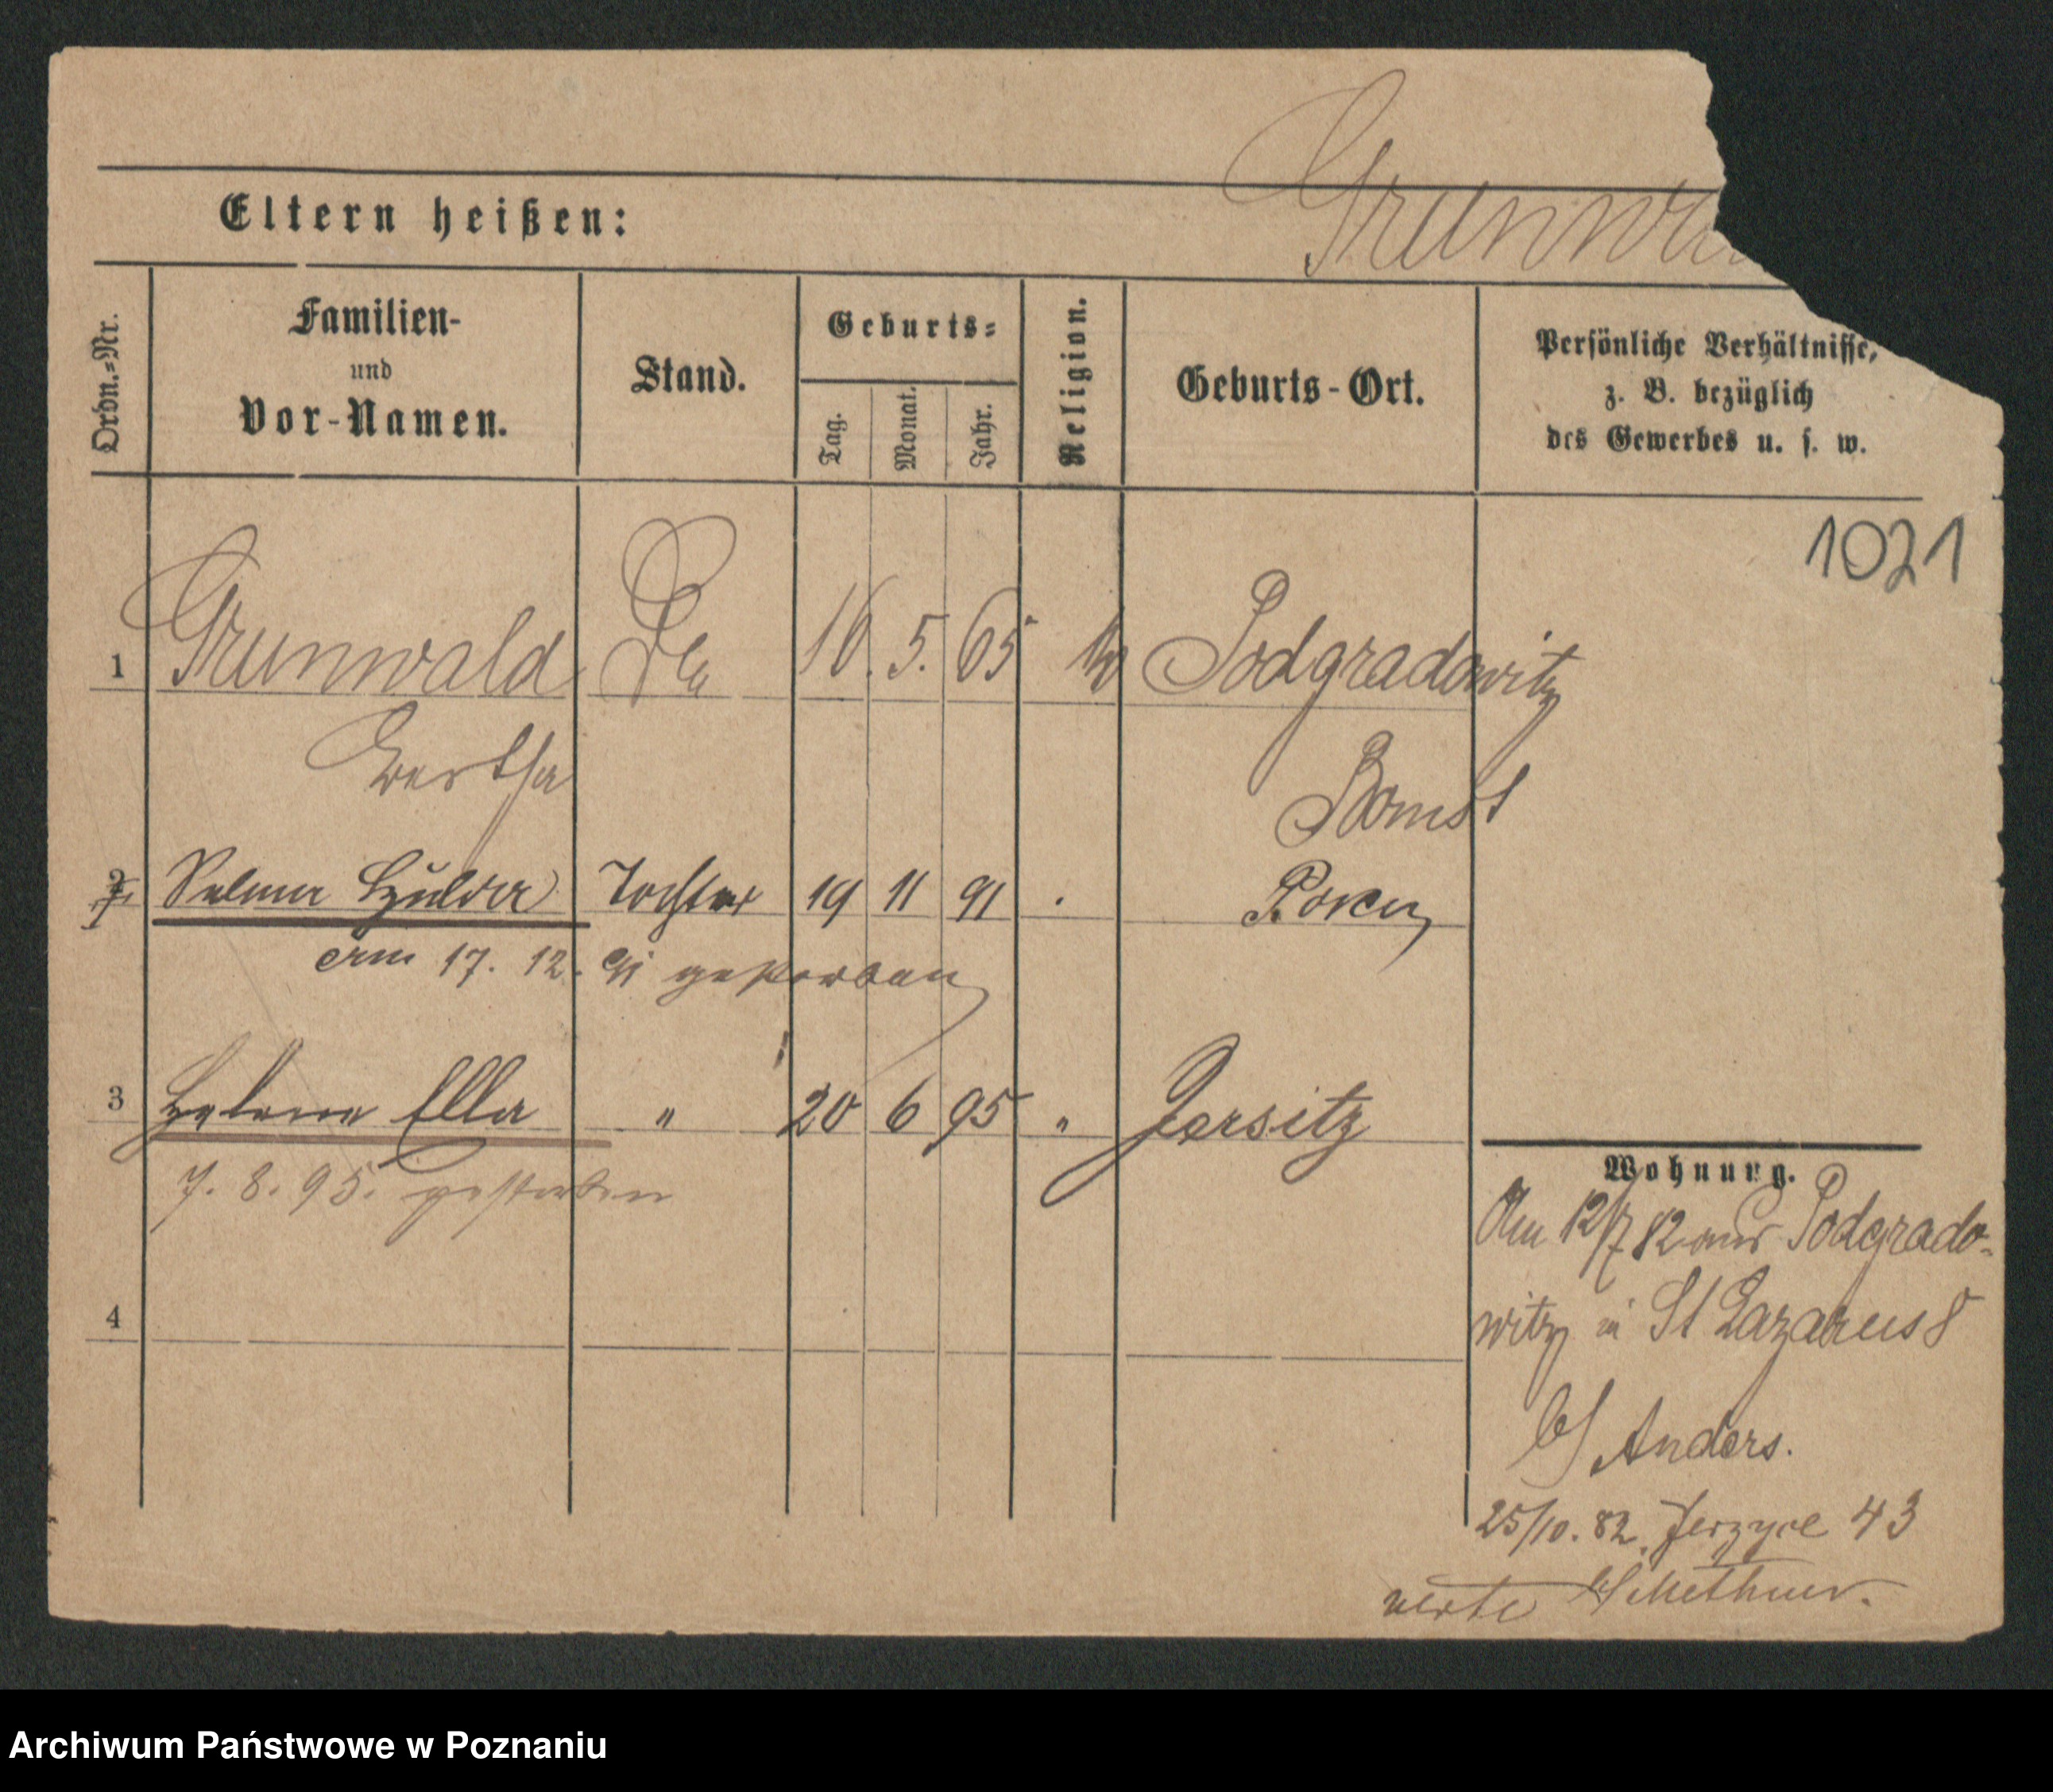 Grunwa
Eltern heißen:
Ordn.=Nr.
Familien-
und
Vor-Namen.
Stand.
Geburts=
Tag.
Monat.
Jahr.
Religion.
Geburts-Ort.
Persönliche Verhältnisse,
z. B. bezüglich
des Gewerbes u. s. w.
1021
1 Grunwald 16. 5. 65 Podgradowitz
Bertha
Bomst
2 Selma Hulda Tochter 19 11 91 Posen
am 17. 12. 91 gestorben
3 Helene Ella " 20 6 95 " Jersitz
7. 8. 95. gestorben
4
Wohnung.
Am 12/7 82 aus Podgrado-
witz in St Lazarus 8
b/ Anders.
25/10. 82. Jerzyce 43
verte b/ Methner.
Archiwum Państwowe w Poznaniu